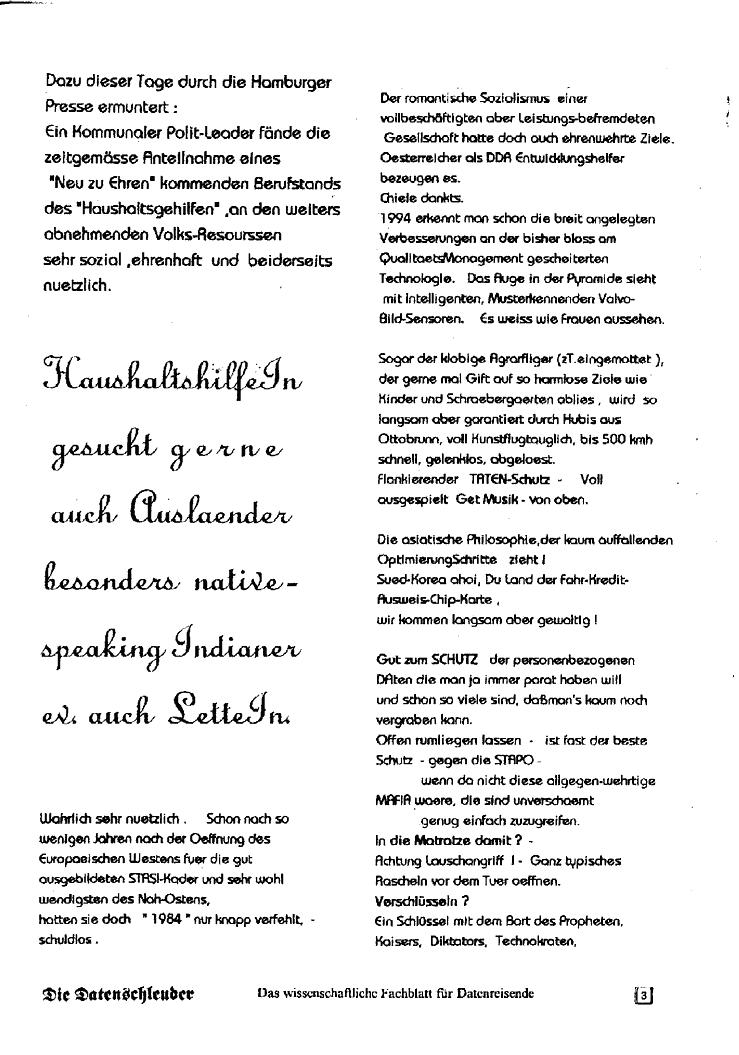 Dazu dieser Tage durch die Hamburger
Presse ermuntert :
Ein Kommunaler Polit-Leader fände die
zeitgemässe Anteilnahme eines
"Neu zu Ehren" kommenden Berufstands
des "Haushaltsgehilfen" ,an den weiters
abnehmenden Volks-Resourssen
sehr sozial ,ehrenhaft und beiderseits
nuetzlich.
HaushaltshilfeIn
gesucht gerne
auch Auslaender
besonders native-
speaking Indianer
ev. auch LetteIn.
Wahrlich sehr nuetzlich . Schon nach so
wenigen Jahren nach der Oeffnung des
Europaeischen Westens fuer die gut
ausgebildeten STASI-Kader und sehr wohl
wendigsten des Nah-Ostens,
hatten sie doch " 1984 " nur knapp verfehlt, -
schuldlos .
Der romantische Sozialismus einer
vollbeschäftigten aber Leistungs-befremdeten
Gesellschaft hatte doch auch ehrenwehrte Ziele.
Oesterreicher als DDA Entwicklungshelfer
bezeugen es.
Chiele dankts.
1994 erkennt man schon die breit angelegten
Verbesserungen an der bisher bloss am
QualitaetsManagement gescheiterten
Technologie. Das Auge in der Pyramide sieht
mit Intelligenten, Musterkennenden Valvo-
Bild-Sensoren. Es weiss wie Frauen aussehen.
Sogar der klobige Agrarfliger (zT.eingemottet ),
der gerne mal Gift auf so harmlose Ziele wie
Kinder und Schraebergaerten ablies , wird so
langsam aber garantiert durch Hubis aus
Ottobrunn, voll Kunstflugtauglich, bis 500 kmh
schnell, gelenklos, abgeloest.
Flankierender TATEN-Schutz - Voll
ausgespielt Get Musik - von oben.
Die asiatische Philosophie,der kaum auffallenden
OptimierungSchritte zieht !
Sued-Korea ahoi, Du Land der Fahr-Kredit-
Ausweis-Chip-Karte ,
wir kommen langsam aber gewaltig !
Gut zum SCHUTZ der personenbezogenen
DAten die man ja immer parat haben will
und schon so viele sind, daßman's kaum noch
vergraben kann.
Offen rumliegen lassen - ist fast der beste
Schutz - gegen die STAPO -
wenn da nicht diese allgegen-wehrtige
MAFIA waere, die sind unverschaemt
genug einfach zuzugreifen.
In die Matratze damit ? -
Achtung Lauschangriff ! - Ganz typisches
Rascheln vor dem Tuer oeffnen.
Verschlüsseln ?
Ein Schlüssel mit dem Bart des Propheten,
Kaisers, Diktators, Technokraten,
Die Datenschleuder
Das wissenschaftliche Fachblatt für Datenreisende
3